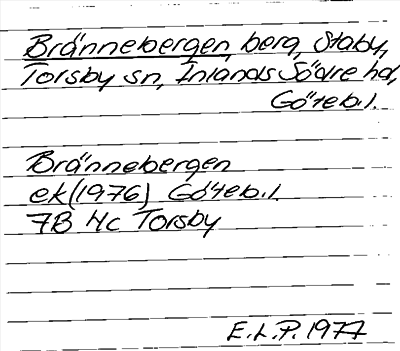 Brännebergen, berg, Staby,
Torsby sn, Inlands Södre hd,
Göteb. l.
Brännebergen
ek (1976) Göteb. l.
7B 4c Torsby
E. L. P. 1977